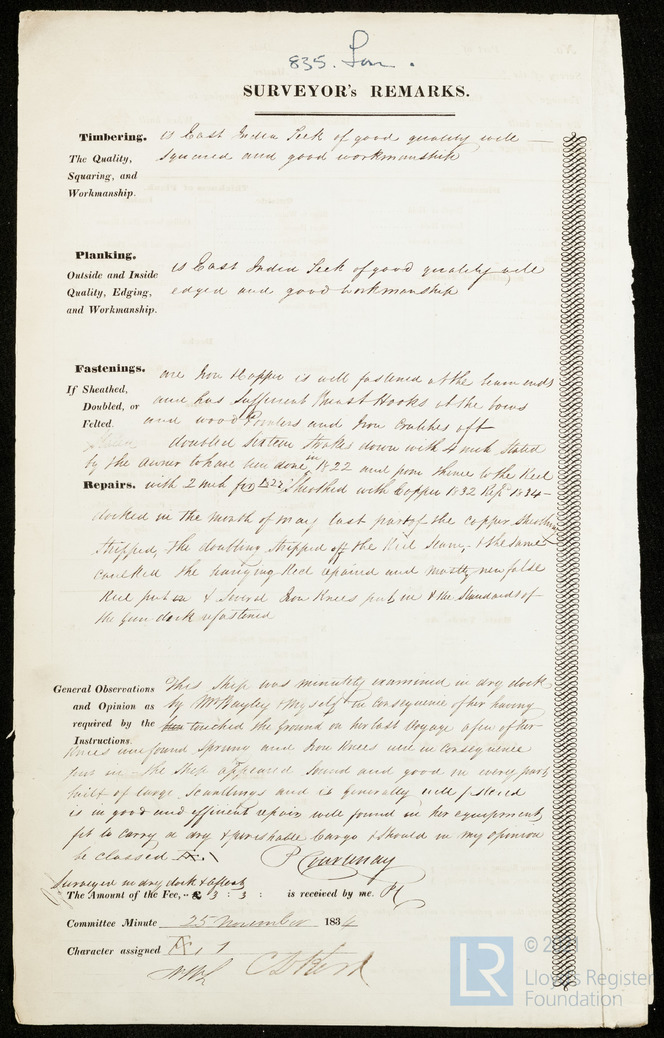 835. Lon.
SURVEYOR's REMARKS.
Timbering. is East India Teek of good quality well
The Quality, Squaring, and Workmanship. squared and good workmanship
Planking.
Outside and Inside Quality, Edging, and Workmanship. is East India Teek of good quality well
edged and good workmanship
Fastenings. are Iron & Copper is well fastened at the beam ends
If Sheathed, Doubled, or Felted. and has sufficient Breast Hooks at the bows
and wood Pointers and Iron Crutches aft
doubled sixteen strakes down with 4 inch stated
by the owner to have been done in 1822 and from thence to the Keel
Repairs. with 2 inch Sheathed with Copper 1832 Repd 1834 -
docked in the month of may last part of the copper sheathing
stripped, the doubling stripped off the Keel Seam, & the same
caulked the hanging Keel repaired and mostly new false
Keel put on & several Iron Knees put in & the Standards of
the Gun deck refastened
General Observations and Opinion as required by the Instructions. This Ship was minutely examined in dry dock
by Mr Bayley & Myself in consequence of her having
touched the Ground on her last Voyage a few of her
Knees were found sprung and Iron Knees were in consequence
put in - the Ship appeared sound and good in every part
built of large scantlings and is generally well fastened
is in good and efficient repair well found in her equipment,
fit to carry a dry & perishable Cargo & should in my opinion
be classed A. 1
P Courtenay
Surveyed in dry dock & afloat
The Amount of the Fee, £ 3 : 3 : is received by me. PC
Committee Minute 25 November 1834
Character assigned A 1
© 2021
LR
Lloyd's Register
Foundation